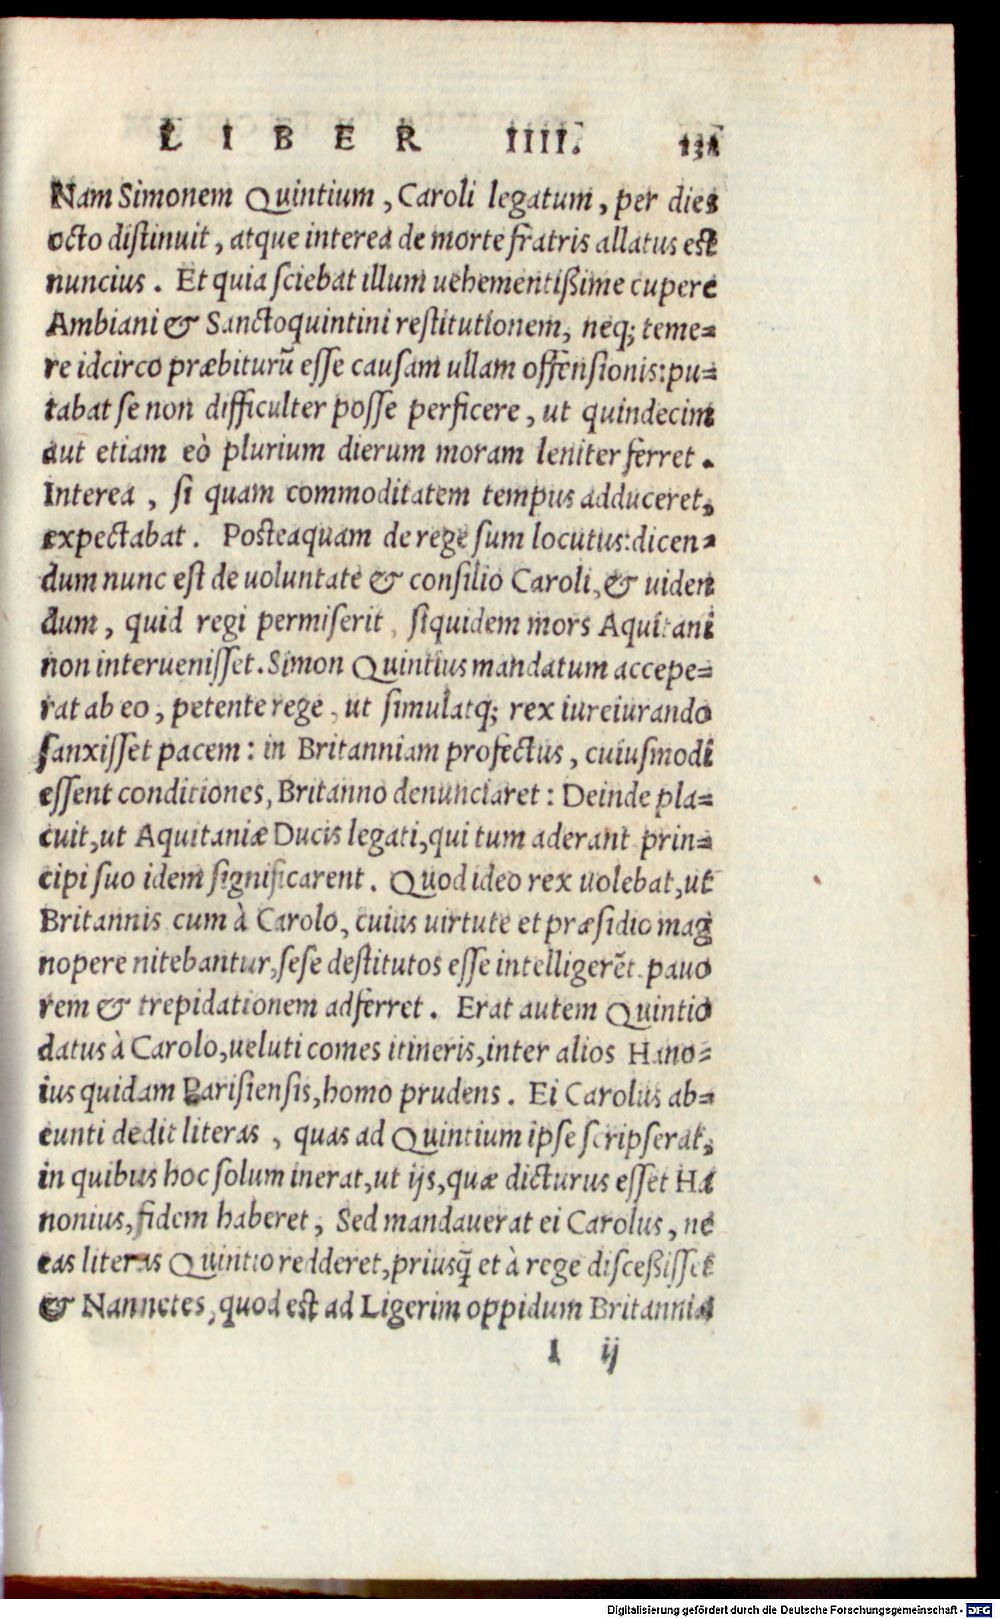 LIBER IIII. 131
Nam Simonem Quintium, Caroli legatum, per dies
octo distinuit, atque interea de morte fratris allatus est
nuncius. Et quia sciebat illum uehementißime cupere
Ambiani & Sanctoquintini restitutionem, neq; teme=
re idcirco præbiturũ esse causam ullam offensionis: pu=
tabat se non difficulter posse perficere, ut quindecim
aut etiam eò plurium dierum moram leniter ferret.
Interea, si quam commoditatem tempus adduceret,
expectabat. Posteaquam de rege sum locutus: dicen=
dum nunc est de uoluntate & consilio Caroli, & uiden
dum, quid regi permiserit, siquidem mors Aquitani
non interuenisset. Simon Quintius mandatum accepe=
rat ab eo, petente rege, ut simulatq; rex iureiurando
sanxisset pacem: in Britanniam profectus, cuiusmodi
essent conditiones, Britanno denunciaret: Deinde pla=
cuit, ut Aquitaniæ Ducis legati, qui tum aderant prin=
cipi suo idem significarent. Quod ideo rex uolebat, ut
Britannis cum à Carolo, cuius uirtute et præsidio mag
nopere nitebantur, sese destitutos esse intelligerẽt pauo
rem & trepidationem adferret. Erat autem Quintio
datus à Carolo, ueluti comes itineris, inter alios Hano=
ius quidam Parisiensis, homo prudens. Ei Carolus ab=
eunti dedit literas, quas ad Quintium ipse scripserat,
in quibus hoc solum inerat, ut ijs, quæ dicturus esset Ha
nonius, fidem haberet, Sed mandauerat ei Carolus, ne
eas literas Quintio redderet, priusq̃ et à rege disceßisset
& Nannetes, quod est ad Ligerim oppidum Britanniæ
I ij
Digitalisierung gefördert durch die Deutsche Forschungsgemeinschaft - DFG